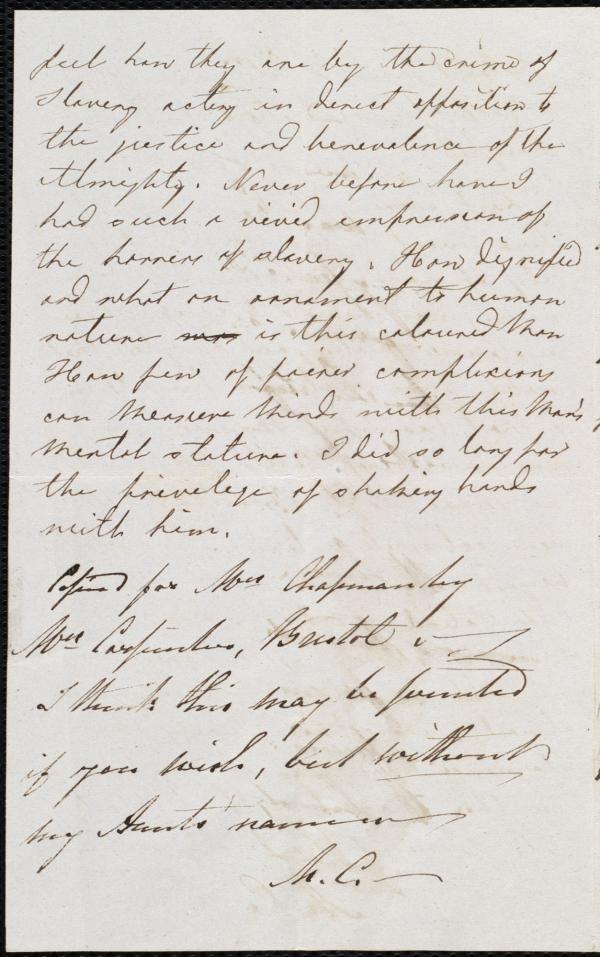 feel how they are by the crime of
Slavery acting in direct opposition to
the justice and benevolence of the
Almighty. Never before have I
had such a vivid impression of
the horrors of slavery. How dignified
and what an ornament to human
nature was is this coloured Man
How few of fairer complexions
can measure Minds with this Man's
Mental stature. I did so long for
the privelige of shaking hands
with him.
Copied for Mrs Chapman by
Mrs Carpenter, Bristol
I think this may be printed
if you wish, but without
my Aunts' names
M. C.